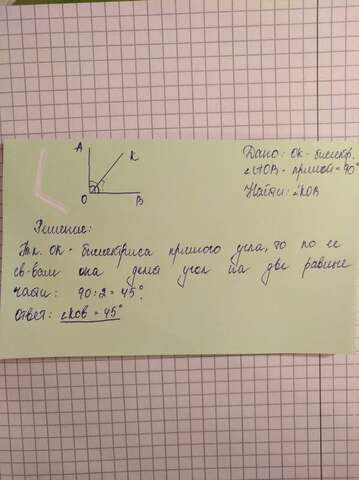 A
K
O
B
Дано: OK - биссектр.
∠AOB - прямой = 90°
Найти: ∠KOB
Решение:
Т.к. OK - биссектриса прямого угла, то по её
св-вам она делит угол на две равные
части: 90:2 = 45°.
Ответ: ∠KOB = 45°